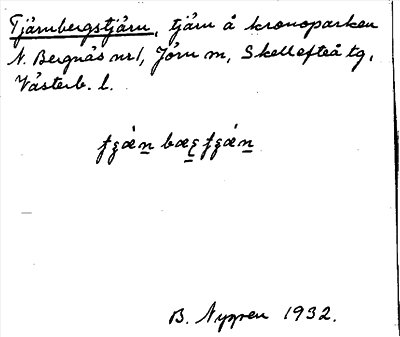 Tjärnbergstjärn, tjärn å kronoparken
N. Bergnäs nr 1, Jörn sn, Skellefteå tg,
Västerb. l.
B. Nygren 1932.